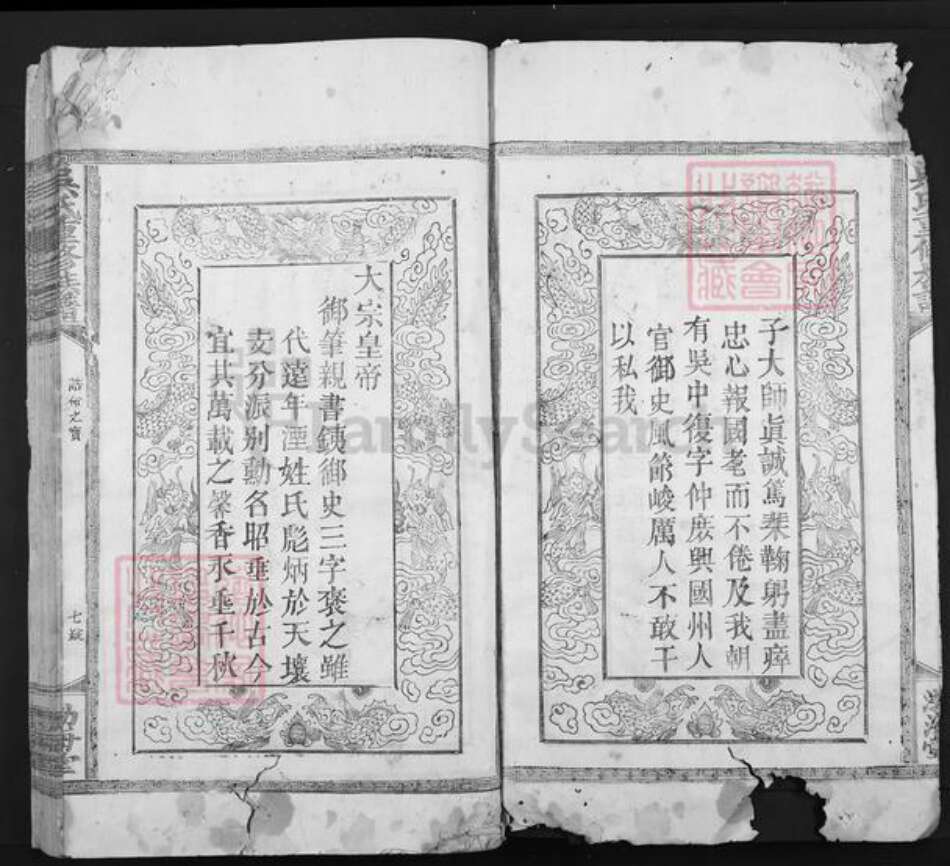 子大師眞誠篤棐鞠躬盡瘁
忠心報國耄而不倦及我朝
有吳中復字仲庶興國州人
官御史風節峻厲人不敢干
以私我
大宗皇帝
御筆親書鐵御史三字褒之雖
代遠年湮姓氏彪炳於天壤
支分派別勳名昭垂於古今
宜其萬載之馨香永垂千秋
誥命之寶
FamilySearch